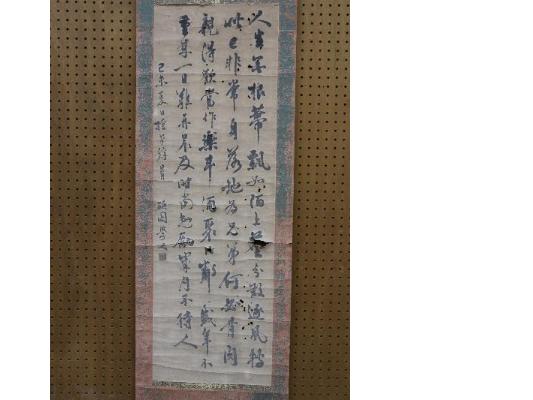 人生無根蒂飄如陌上塵分散逐風轉
此已非常身落地為兄弟何必骨肉
親得歡當作樂斗酒聚比鄰盛年不
重來一日難再晨及時當勉勵歲月不待人
己未夏日